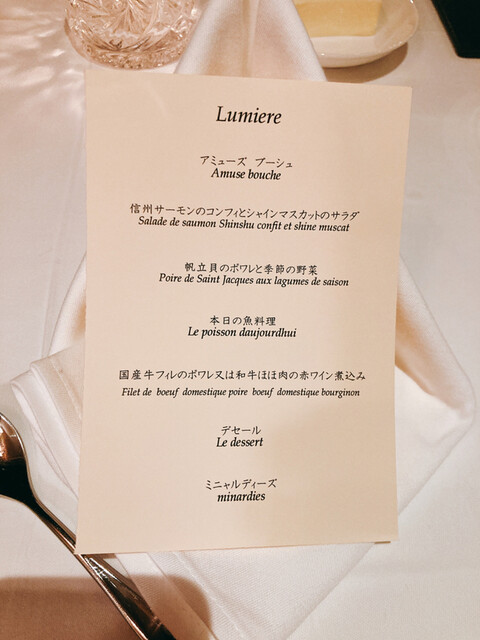 Lumiere
アミューズ ブーシュ
Amuse bouche
信州サーモンのコンフィとシャインマスカットのサラダ
Salade de saumon Shinshu confit et shine muscat
帆立貝のポワレと季節の野菜
Poire de Saint Jacques aux lagumes de saison
本日の魚料理
Le poisson daujourdhui
国産牛フィレのポワレ又は和牛ほほ肉の赤ワイン煮込み
Filet de boeuf domestique poire boeuf domestique bourginon
デセール
Le dessert
ミニャルディーズ
minardies